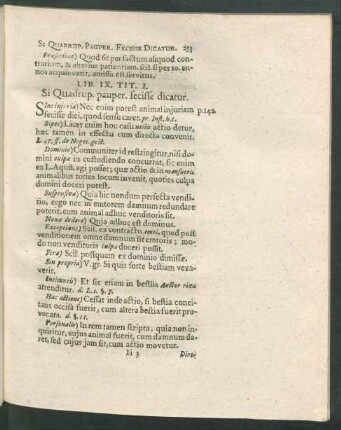 SI QUADRUP. PAUPER. FECISSE DICATUR. 253
Prospectus) Quod sit per factum aliquod con-
trarium, & alterius patientiam. scil. si per 10. an-
nos acquieverit, amissa est servitus.
LIB. IX. TIT. I.
Si Quadrup. pauper. fecisse dicatur.
Sine injuria) Nec enim potest animal injuriam p. 142.
fecisse dici, quod sensu caret. pr. Inst. h. t.
Dupli) Licet enim hoc casu noxia actio detur,
hæc tamen in effectu cum directa convenit.
L. 47. ff. de Negot. gest.
Dominio) Communiter id restringitur, nisi do-
mini culpa in custodiendo concurrat, sic enim
ex L. Aquil. agi posse; quæ actio in mansuetis
animalibus toties locum invenit, quoties culpa
domini doceri potest.
Suspensiva) Quia hic nondum perfecta vendi-
tio, ergo nec in emtorem damnum redundare
poterit, cum animal adhuc venditoris sit.
Noxæ dedere) Quia adhuc est dominus.
Exceptione) Scil. ex contractu emti, quod post
venditionem omne damnum sit emtoris; mo-
do non venditoris culpa doceri possit.
Fera) Scil. postquam ex dominio dimissæ.
Sin propria) V. gr. Si quis forte bestiam vexa-
verit.
Incitantis) Et sic etiam in bestiis Auctor rixæ
attenditur. d. L. 1. §. 8.
Hac actione) Cessat inde actio, si bestia conci-
tans occisa fuerit, cum altera bestia fuerit pro-
vocata. d. §. 11.
Personalis) In rem tamen scripta, quia non in-
quiritur, cujus animal fuerit, cum damnum da-
ret, sed cujus jam sit, cum actio movetur.
Ii 3 Dire-